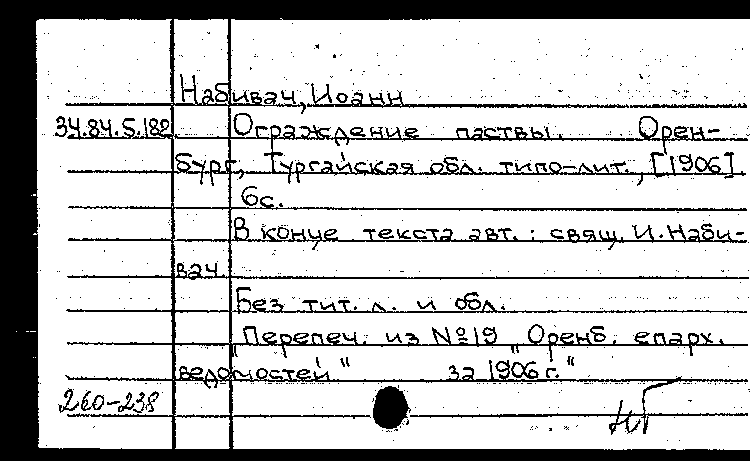 Набивач, Иоанн
34.84.5.182. Ограждение паствы. Орен-
бург, Тургайская обл. типо-лит., [1906].
6с.
В конце текста авт.: свящ. И. Наби-
вач.
Без тит. л. и обл.
"Перепеч. из №19 „Оренб. епарх.
ведомостей" за 1906 г."
260-238
НГ